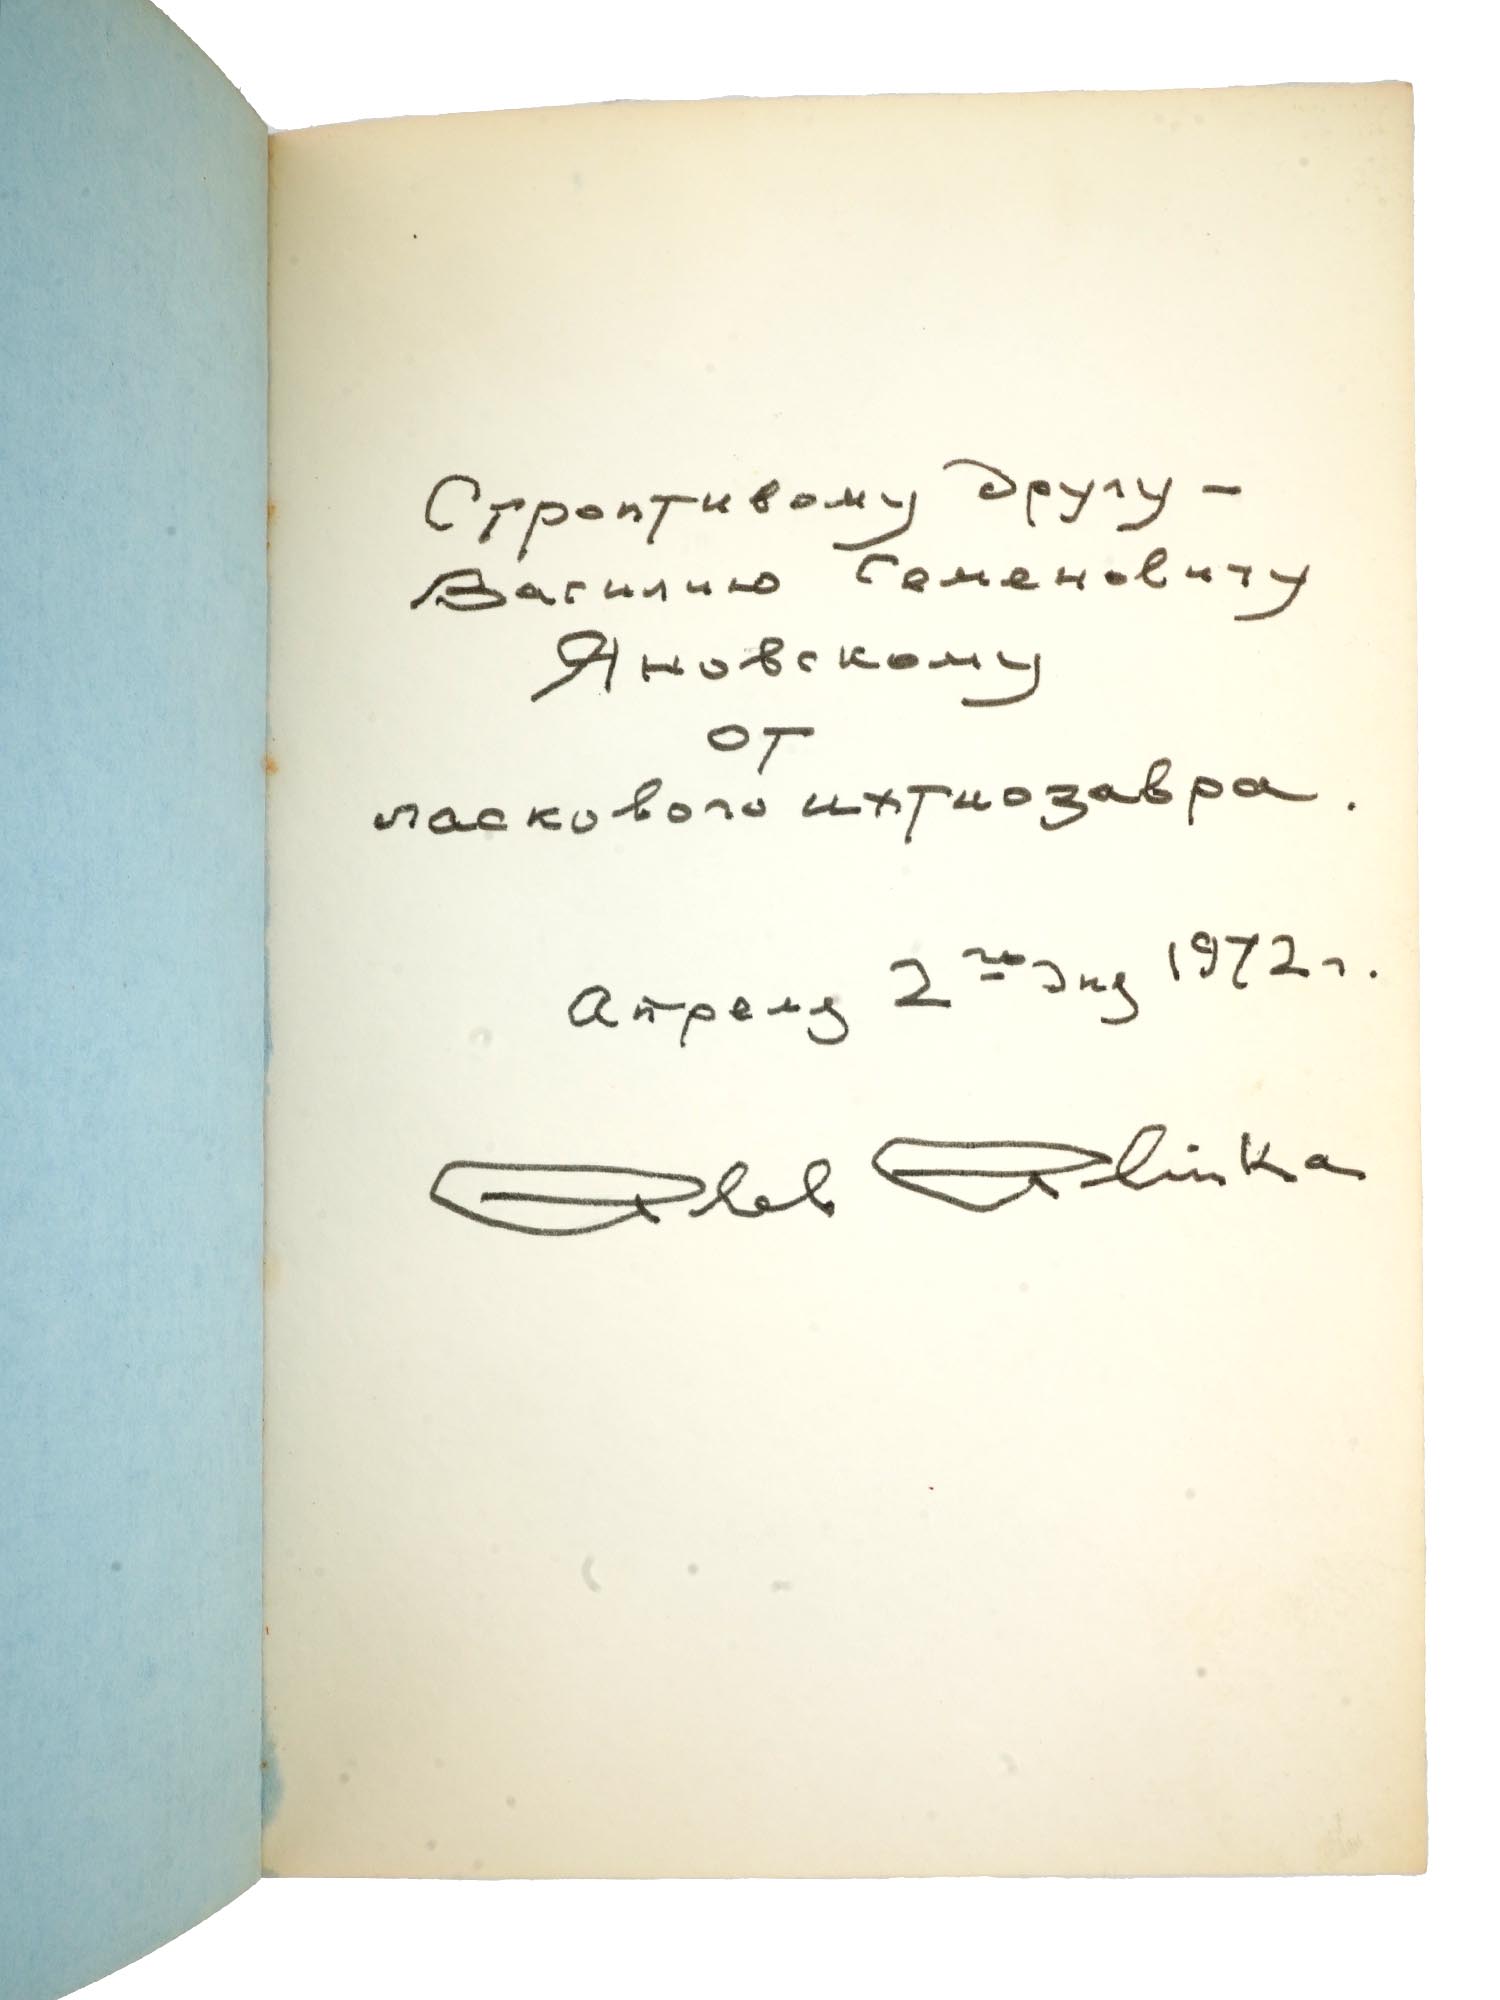 Строптивому другу –
Василию Семеновичу
Яновскому
от
ласкового ихтиозавра.
Апреля 2го дня 1972 г.
Gleb Glinka